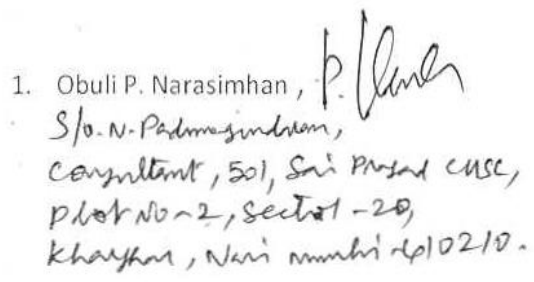 1. Obuli P. Narasimhan , P.
S/o. N. Padmasundram,
Consultant, 501, Sai Prasad CHSC,
Plot No-2, Sector-20,
Kharghar, Navi Mumbai 410210.